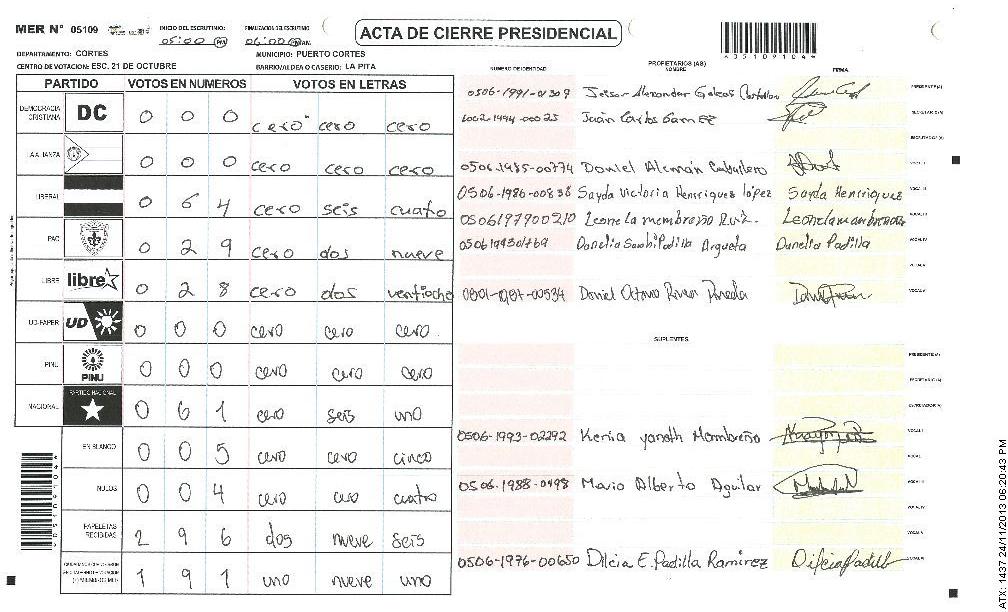 MER N° 05109
INICIO DEL ESCRUTINIO: 05:00 PM
FINALIZACION DEL ESCRUTINIO 06:00 PM AM.
ACTA DE CIERRE PRESIDENCIAL
DEPARTAMENTO: CORTES
MUNICIPIO: PUERTO CORTES
CENTRO DE VOTACION: ESC. 21 DE OCTUBRE
BARRIO/ALDEA O CASERIO: LA PITA
PARTIDO VOTOS EN NUMEROS VOTOS EN LETRAS
DEMOCRACIA CRISTIANA DC 0 0 0 cero cero cero
LA ALIANZA 0 0 0 cero cero cero
LIBERAL 0 6 4 cero seis cuatro
PAC 0 2 9 cero dos nueve
LIBRE libre 0 2 8 cero dos ventiocho
UD-FAPER UD 0 0 0 cero cero cero
PINU PINU 0 0 0 cero cero cero
NACIONAL PARTIDO NACIONAL 0 6 1 cero seis uno
EN BLANCO 0 0 5 cero cero cinco
NULOS 0 0 4 cero cero cuatro
PAPELETAS RECIBIDAS 2 9 6 dos nueve seis
1 9 1 uno nueve uno
NUMERO DE IDENTIDAD
PROPIETARIOS (AS)
NOMBRE
FIRMA
0506-1991-01309 Alexander PRESIDENTE (A)
Juan Carlos SECRETARIO (A)
0506-1985-00774 Daniel Alemán Caballero
0506-1986-00838 Sayda Victoria Henriquez lópez Sayda Henriquez
0506197900210 Leonela membreño Ruiz.
Padilla Argueta Danelia Padilla
0801-1987-00534 Daniel Pineda
SUPLENTES
PRESIDENTE (A)
SECRETARIO (A)
0506-1993-02292 Kenia yanoth Membreño
0506-1988-0498 Mario Alberto Aguilar
0506-1976-00650 Dilcia E. Padilla Ramirez Dilcia Padill
ATX: 1437 24/11/2013 06:20:43 PM